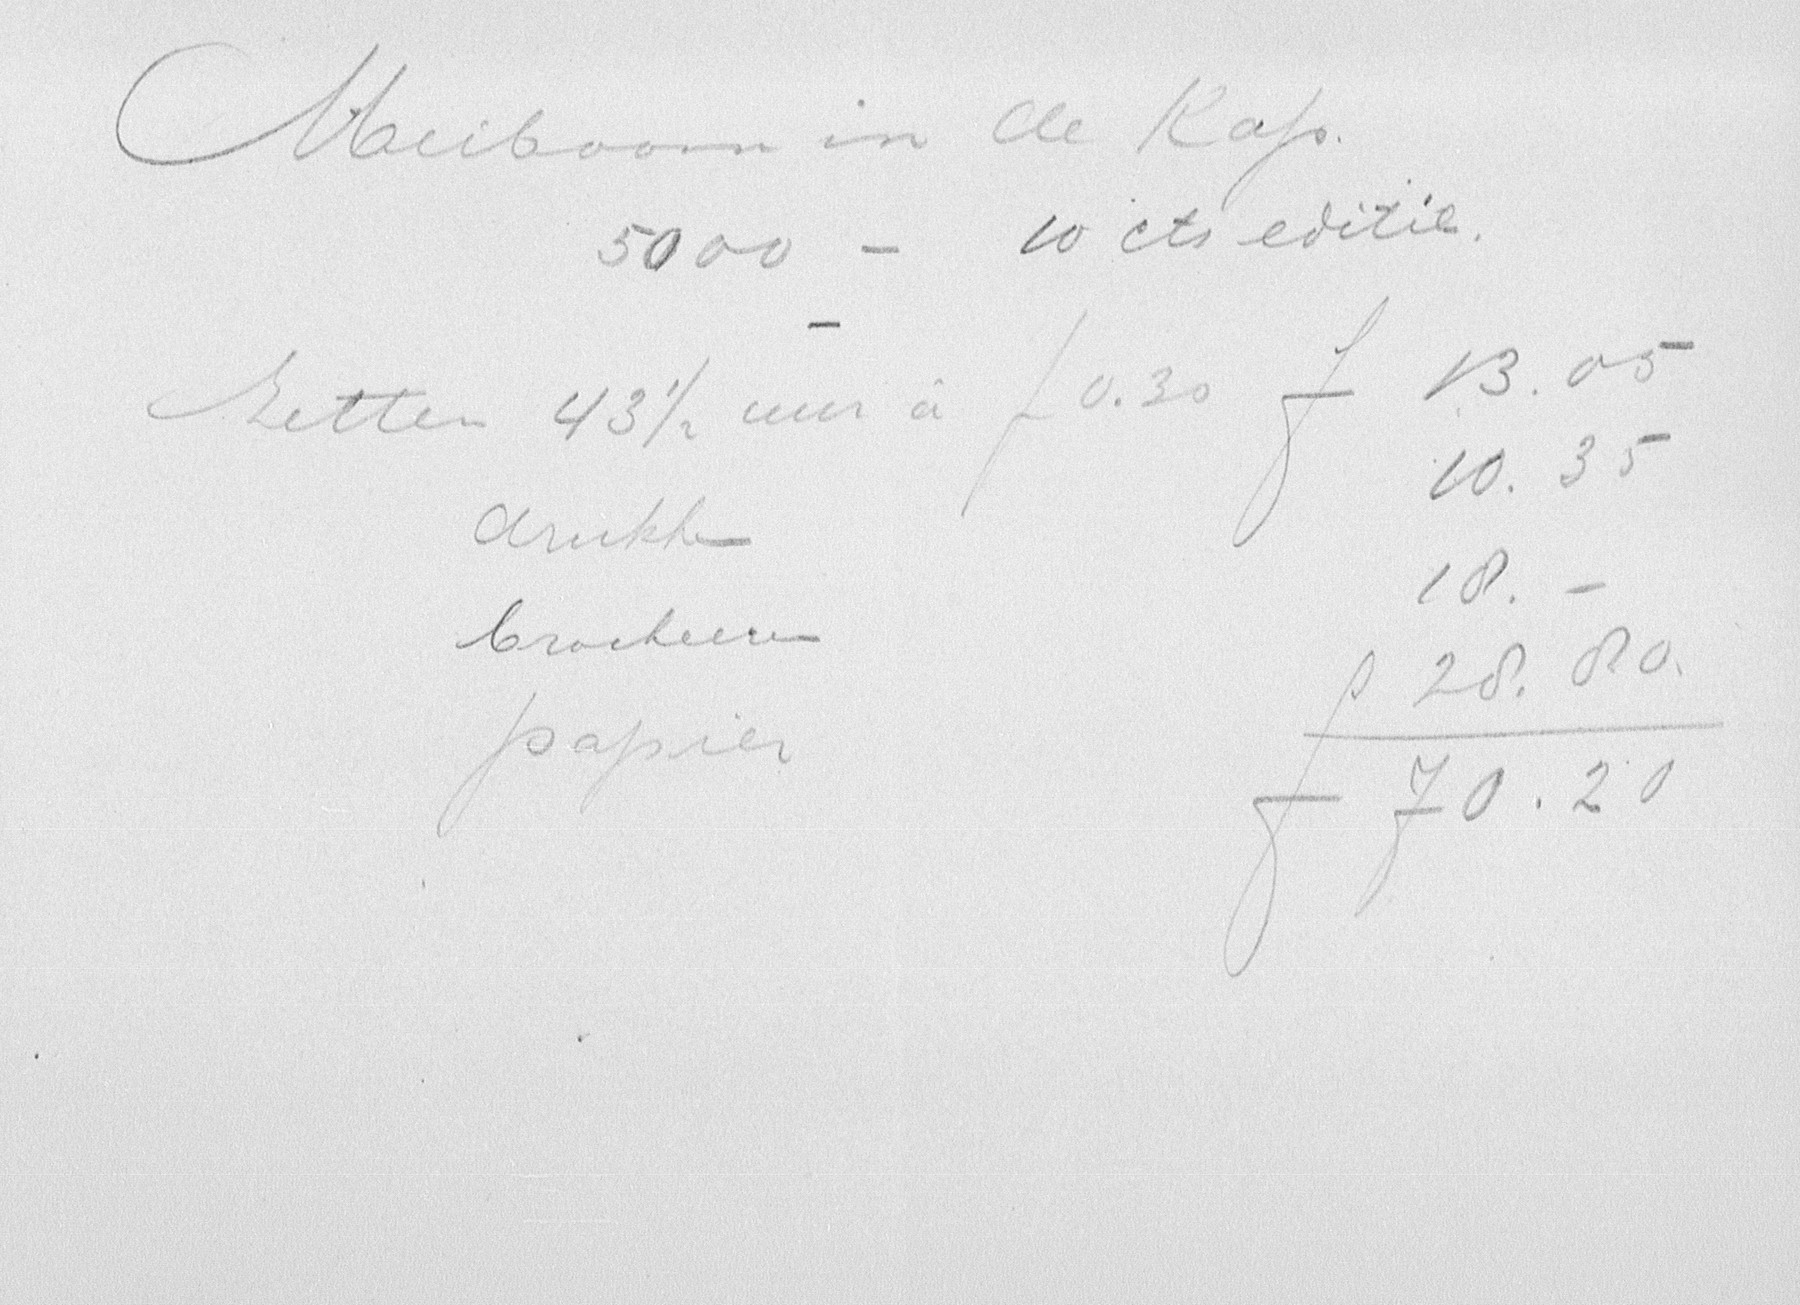 Meiboom in de Kap.
5000 - 10 cts editie.
-
Zetten 43 1/2 uur à f 0.30 f 13.05
drukken 10.35
brocheeren 18.-
papier 28.80.
f 70.20